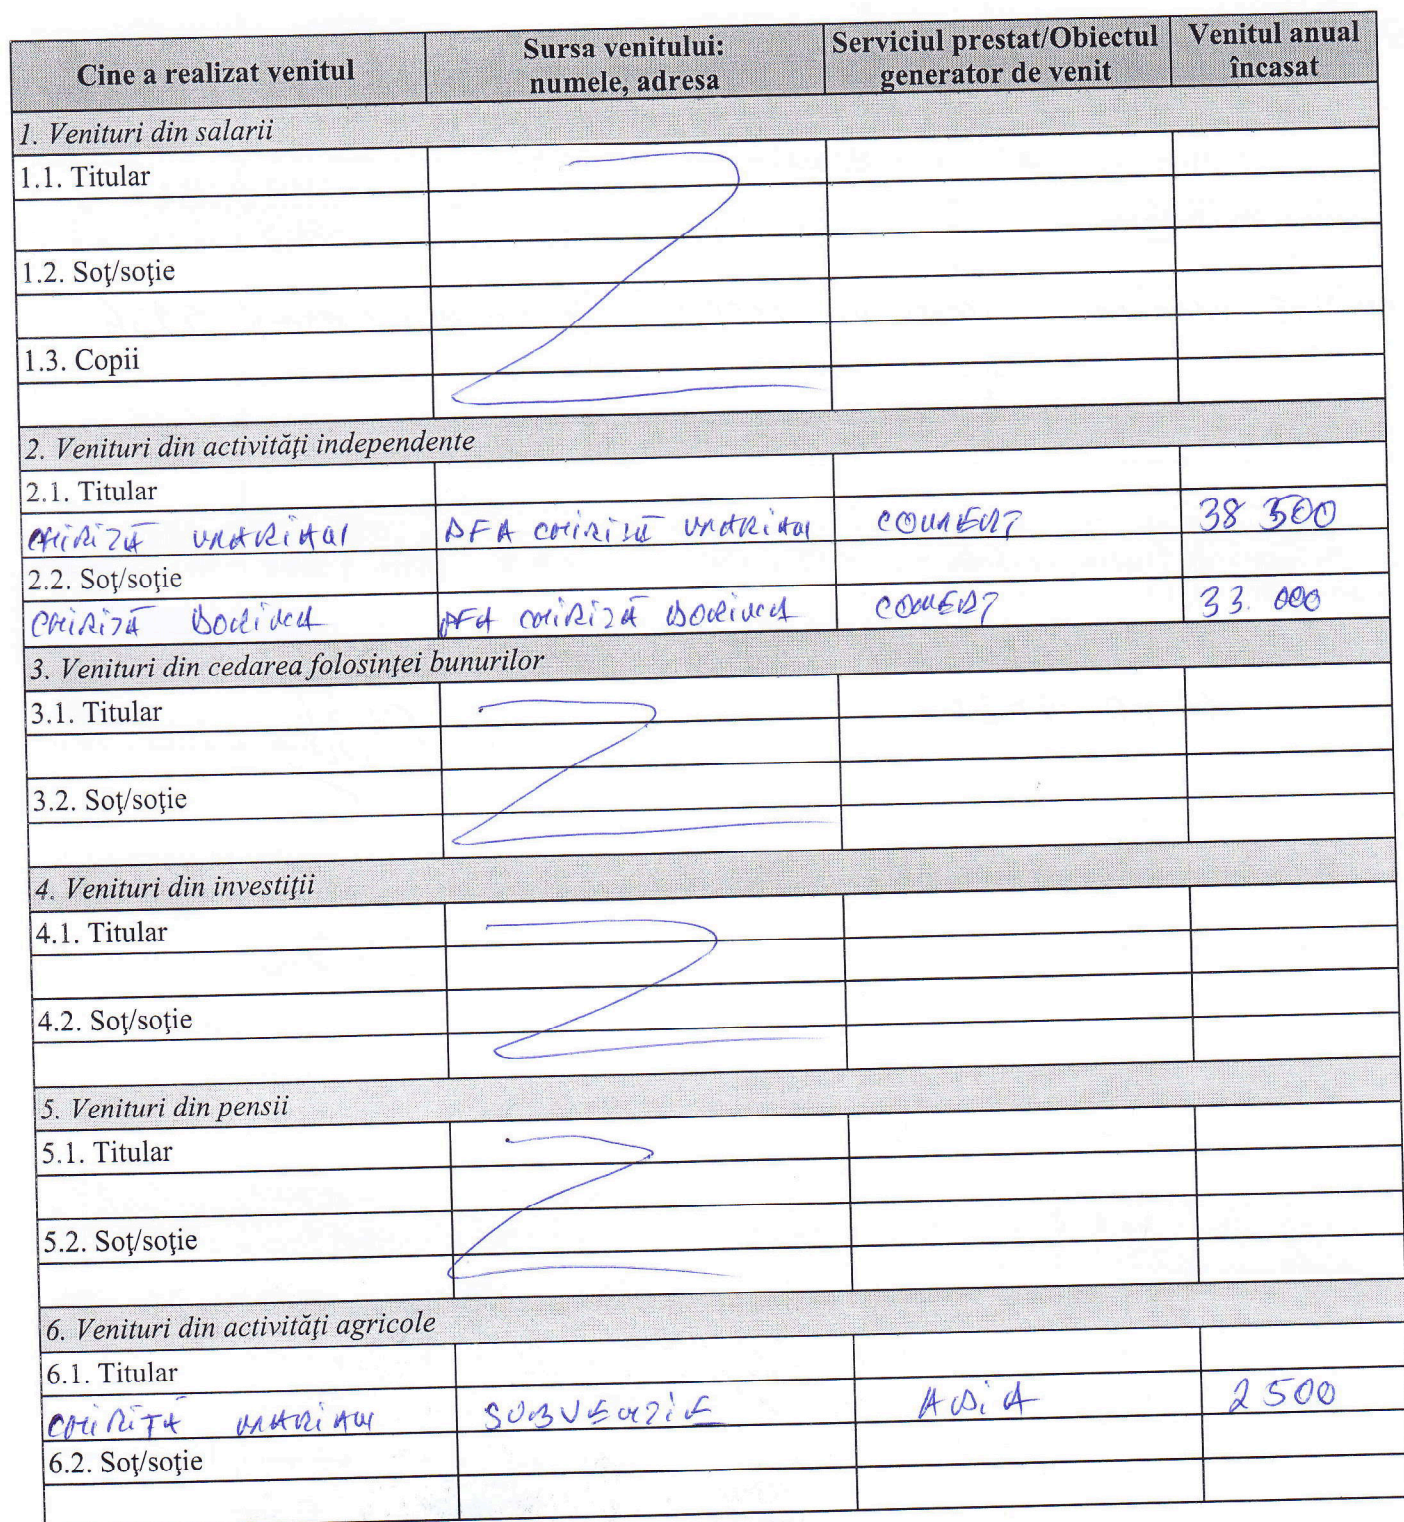 Cine a realizat venitul
Sursa venitului:
numele, adresa
Serviciul prestat/Obiectul
generator de venit
Venitul anual
încasat
1. Venituri din salarii
1.1. Titular
1.2. Soţ/soţie
1.3. Copii
2. Venituri din activităţi independente
2.1. Titular
CHIRIȚĂ MARIAN PFA CHIRIȚĂ MARIAN COMERȚ 38 500
2.2. Soţ/soţie
CHIRIȚĂ DORINA PFA CHIRIȚĂ DORINA COMERȚ 33.000
3. Venituri din cedarea folosinţei bunurilor
3.1. Titular
3.2. Soţ/soţie
4. Venituri din investiţii
4.1. Titular
4.2. Soţ/soţie
5. Venituri din pensii
5.1. Titular
5.2. Soţ/soţie
6. Venituri din activităţi agricole
6.1. Titular
CHIRIȚĂ MARIAN SUBVENȚIE 2 500
6.2. Soţ/soţie